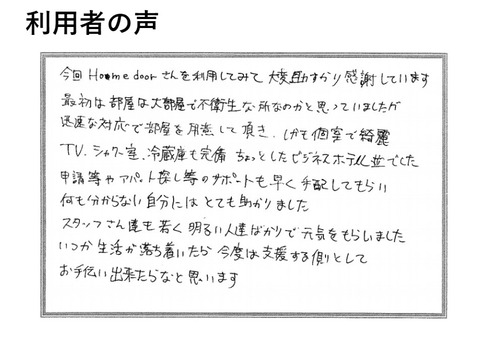 利用者の声
今回 Homedoor さんを利用してみて 大変助かり感謝しています
最初は部屋は大部屋で不衛生な所なのかと思っていましたが
迅速な対応で部屋を用意して頂き、しかも個室で綺麗
TV、シャワー室、冷蔵庫も完備 ちょっとしたビジネスホテル並でした
申請等やアパート探し等のサポートも早く手配してもらい
何も分からない自分にはとても助かりました
スタッフさん達も若く明るい人達ばかりで元気をもらいました
いつか生活が落ち着いたら今度は支援する側として
お手伝い出来たらなと思います